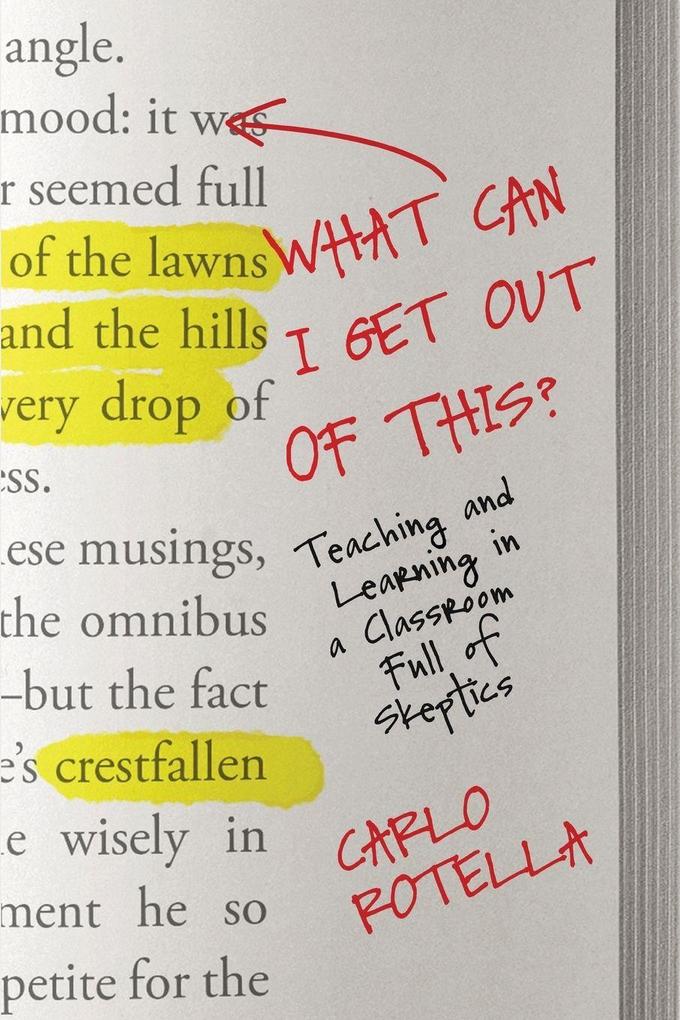 angle.
mood: it was
r seemed full
of the lawns
and the hills
very drop of
ess.
ese musings,
the omnibus
–but the fact
e's crestfallen
e wisely in
ment he so
petite for the
WHAT CAN
I GET OUT
OF THIS?
Teaching and
Learning in
a Classroom
Full of
Skeptics
CARLO
ROTELLA